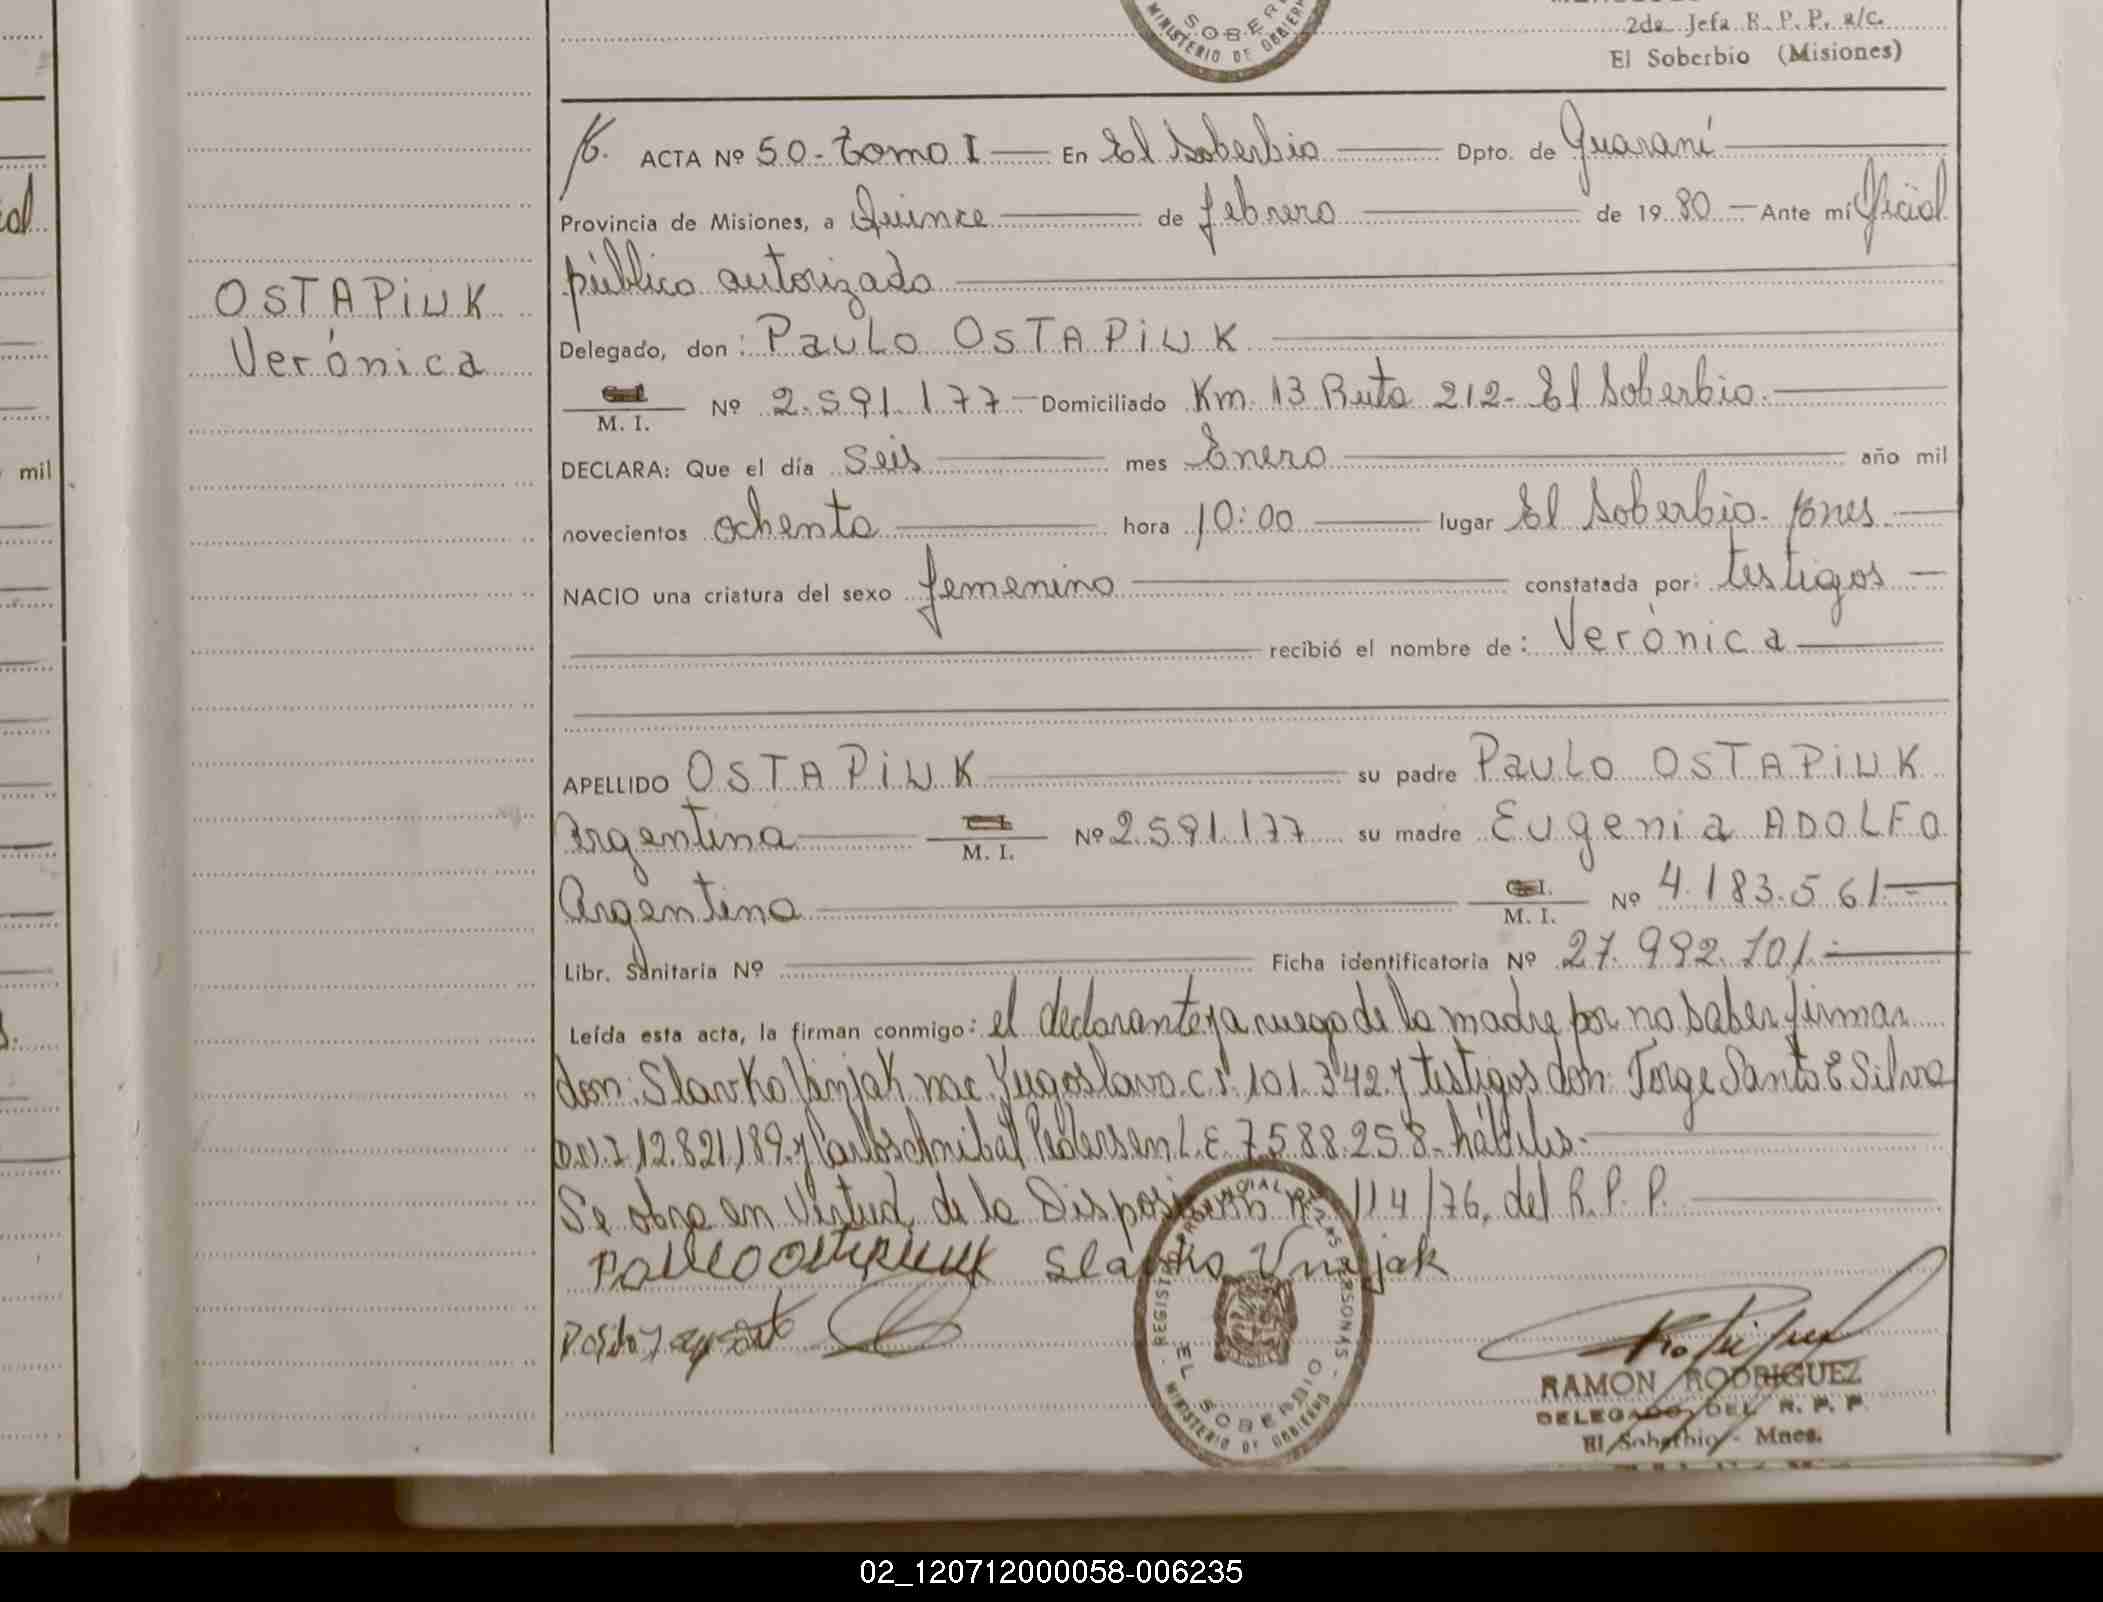 SOBER
MINISTERIO DE GOBIERN
2da Jefa R. P. P. a/c.
El Soberbio (Misiones)
ACTA Nº 50 - Tomo I — En El Soberbio — Dpto. de Guaraní
Provincia de Misiones, a Quince de febrero de 19 80 — Ante mí Oficial
público autorizado
OSTAPIUK
Verónica
Delegado, don: PAULO OSTAPIUK
M. I. Nº 2.591.177 — Domiciliado Km. 13 Ruta 212 - El Soberbio.
DECLARA: Que el día Seis mes Enero año mil
novecientos ochenta hora 10:00 lugar El Soberbio -
NACIO una criatura del sexo femenino constatada por: testigos
recibió el nombre de: Verónica
APELLIDO OSTAPIUK su padre PAULO OSTAPIUK
Argentina M. I. Nº 2.591.177 su madre Eugenia ADOLFO
Argentina M. I. Nº 4.183.561
Libr. Sanitaria Nº Ficha identificatoria Nº 27.992.701
Leída esta acta, la firman conmigo: el declarante y a ruego de la madre por no saber firmar
don: Slavko Vinjak nac. Yugoslavo C.I. 101.342 y testigos don: Jorge Santo E Silva
D.N.I 12.821.189 y Carlos Anibal Pedersen L.E. 7.588.258 - hábiles.-
Se obra en virtud de la Disposición nº 114/76, del R.P.P.
Slavko
REGISTRO PROVINCIAL DE LAS PERSONAS
EL SOBERBIO
MINISTERIO DE GOBIERNO
RAMON RODRIGUEZ
DELEGADO DEL R. P. P.
El Soberbio - Mnes.
mil
02_120712000058-006235